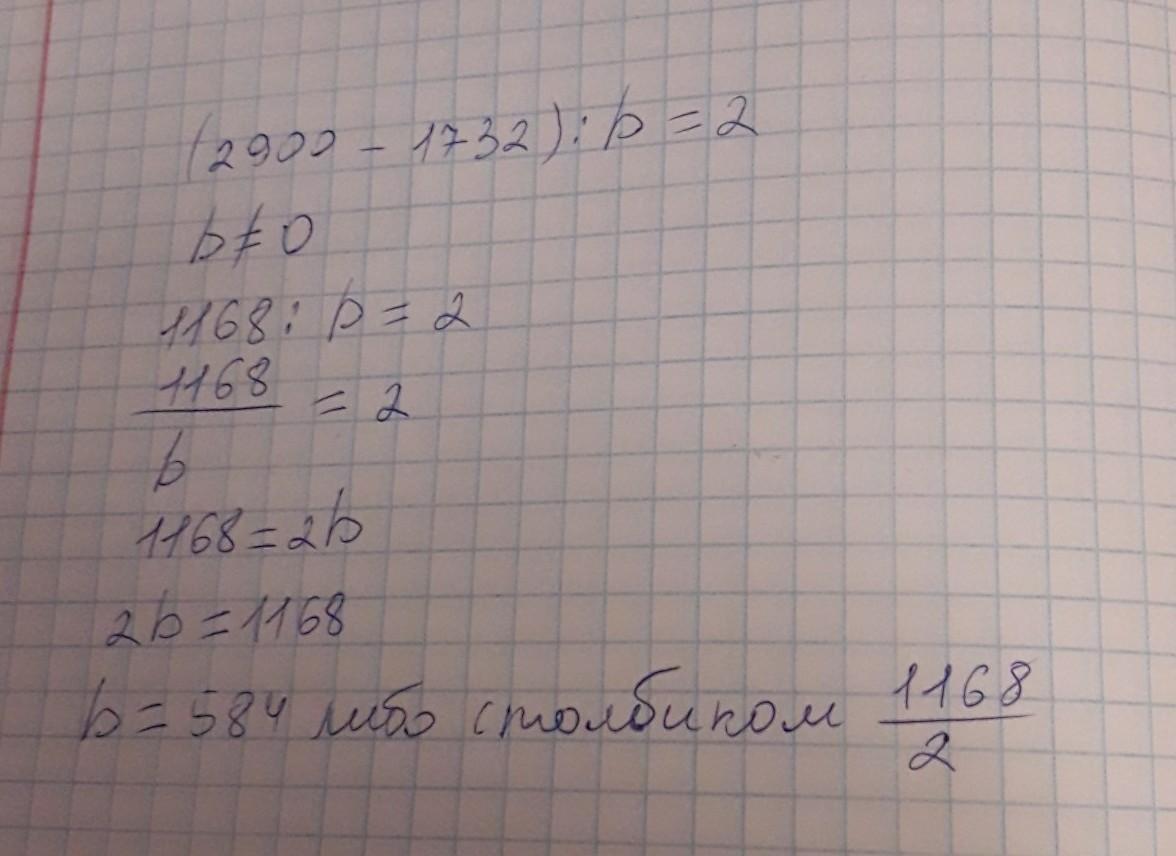 (2900 - 1732) : b = 2
b ≠ 0
1168 : b = 2
1168/b = 2
1168 = 2b
2b = 1168
b = 584 либо столбиком 1168/2